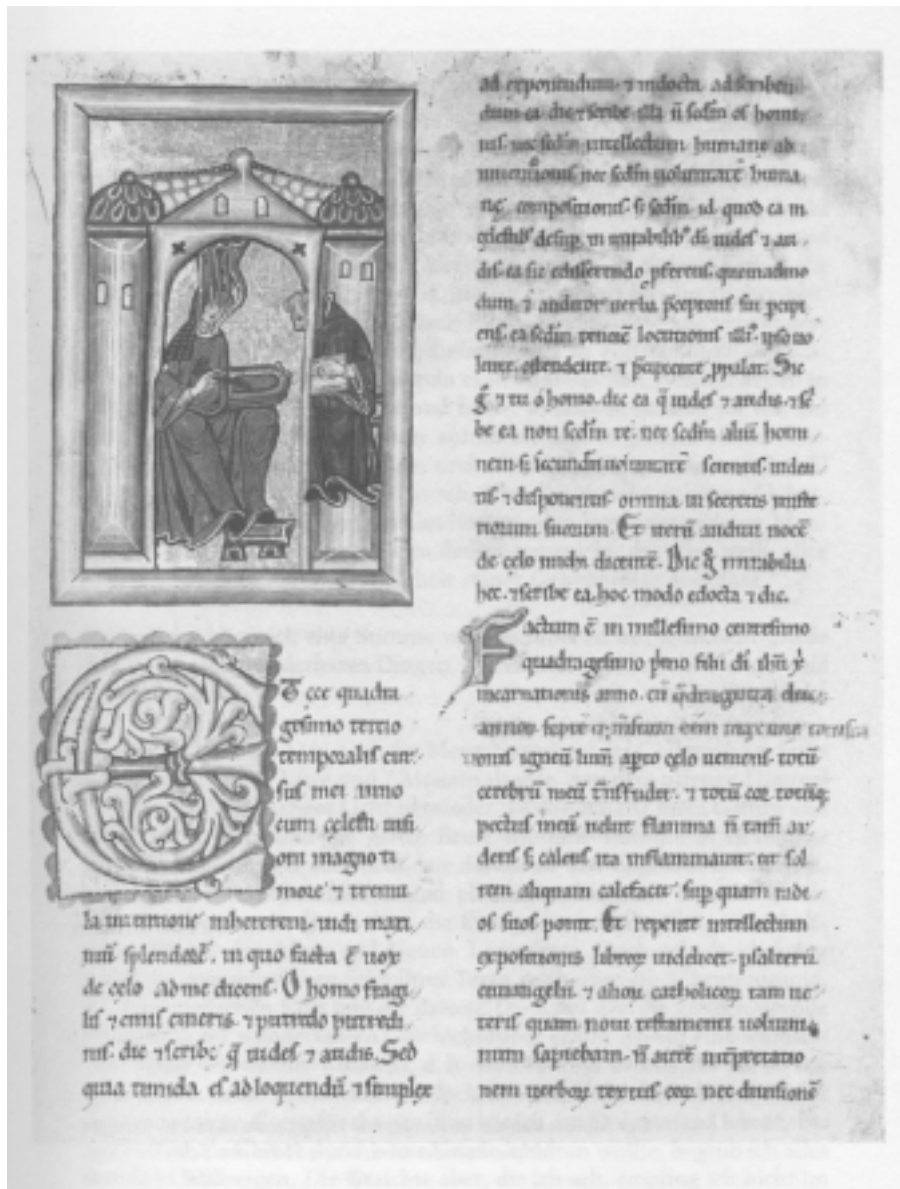 Ecce quadra
gesimo tercio
temporalis cur
sus mei anno
cum celesti uisi
oni magno ti
more ⁊ tremu
la intentione inhererem. uidi maxi
mũ splendorẽ. in quo facta ẽ uox
de celo ad me dicens. O homo fragi
lis ⁊ cinis cineris. ⁊ putredo putredi
nis. dic ⁊ scribe q̃ uides ⁊ audis. Sed
quia timida es ad loquendũ ⁊ simplex
ad exponendum ⁊ indocta ad scriben
dum ea dic ⁊ scribe illa ñ scdm os homi
nis. nec scdm intellectum humane ad
inuentionis nec scdm uoluntatẽ huma
nę compositionis. s; scdm id quod ea in
celestib; desup. in mirabilib; di uides ⁊ au
dis. ea sic edisserendo pferens quemadmo
dum ⁊ auditor uerba pceptoris sui pcipi
ens. ea scdm tenorẽ locutionis illi. ipso uo
lente. ostendente. ⁊ pcipiente ppalat. Sic
g̃ ⁊ tu o homo. dic ea q̃ uides ⁊ audis. ⁊ sc
be ea non scdm te. nec scdm aliũ homi
nem s; secundũ uoluntatẽ scientis. uiden
tis. ⁊ disponentis omnia in secretis miste
riorum suorum. Et iterũ audiui uocẽ
de celo michi dicentẽ. Dic g̃ mirabilia
hec. ⁊ scribe ea. hoc modo edocta ⁊ dic.
Factum ẽ in millesimo centesimo
quadragesimo pmo filii di ihu x̃
incarnationis anno. cũ q̃draginta duo
annor septẽ q; msium eẽm maxime corusca
tionis igneũ lumẽ apto celo ueniens. totũ
cerebrũ meũ tñsfudit. ⁊ totũ cor totũq;
pectus meũ uelut flamma ñ tam̃ ar
dens s; calens ita inflammauit. ut sol
rem aliquam calefacit. sup quam radi
os suos ponit. Et repente intellectum
expositionis libroꝝ uidelicet. psalterii
euuangelii. ⁊ alioꝝ catholicoꝝ tam ue
teris quam noui testamenti uolumi
num sapiebam. ñ autẽ intpretatio
nem uerboꝝ textus eoꝝ nec diuisionẽ